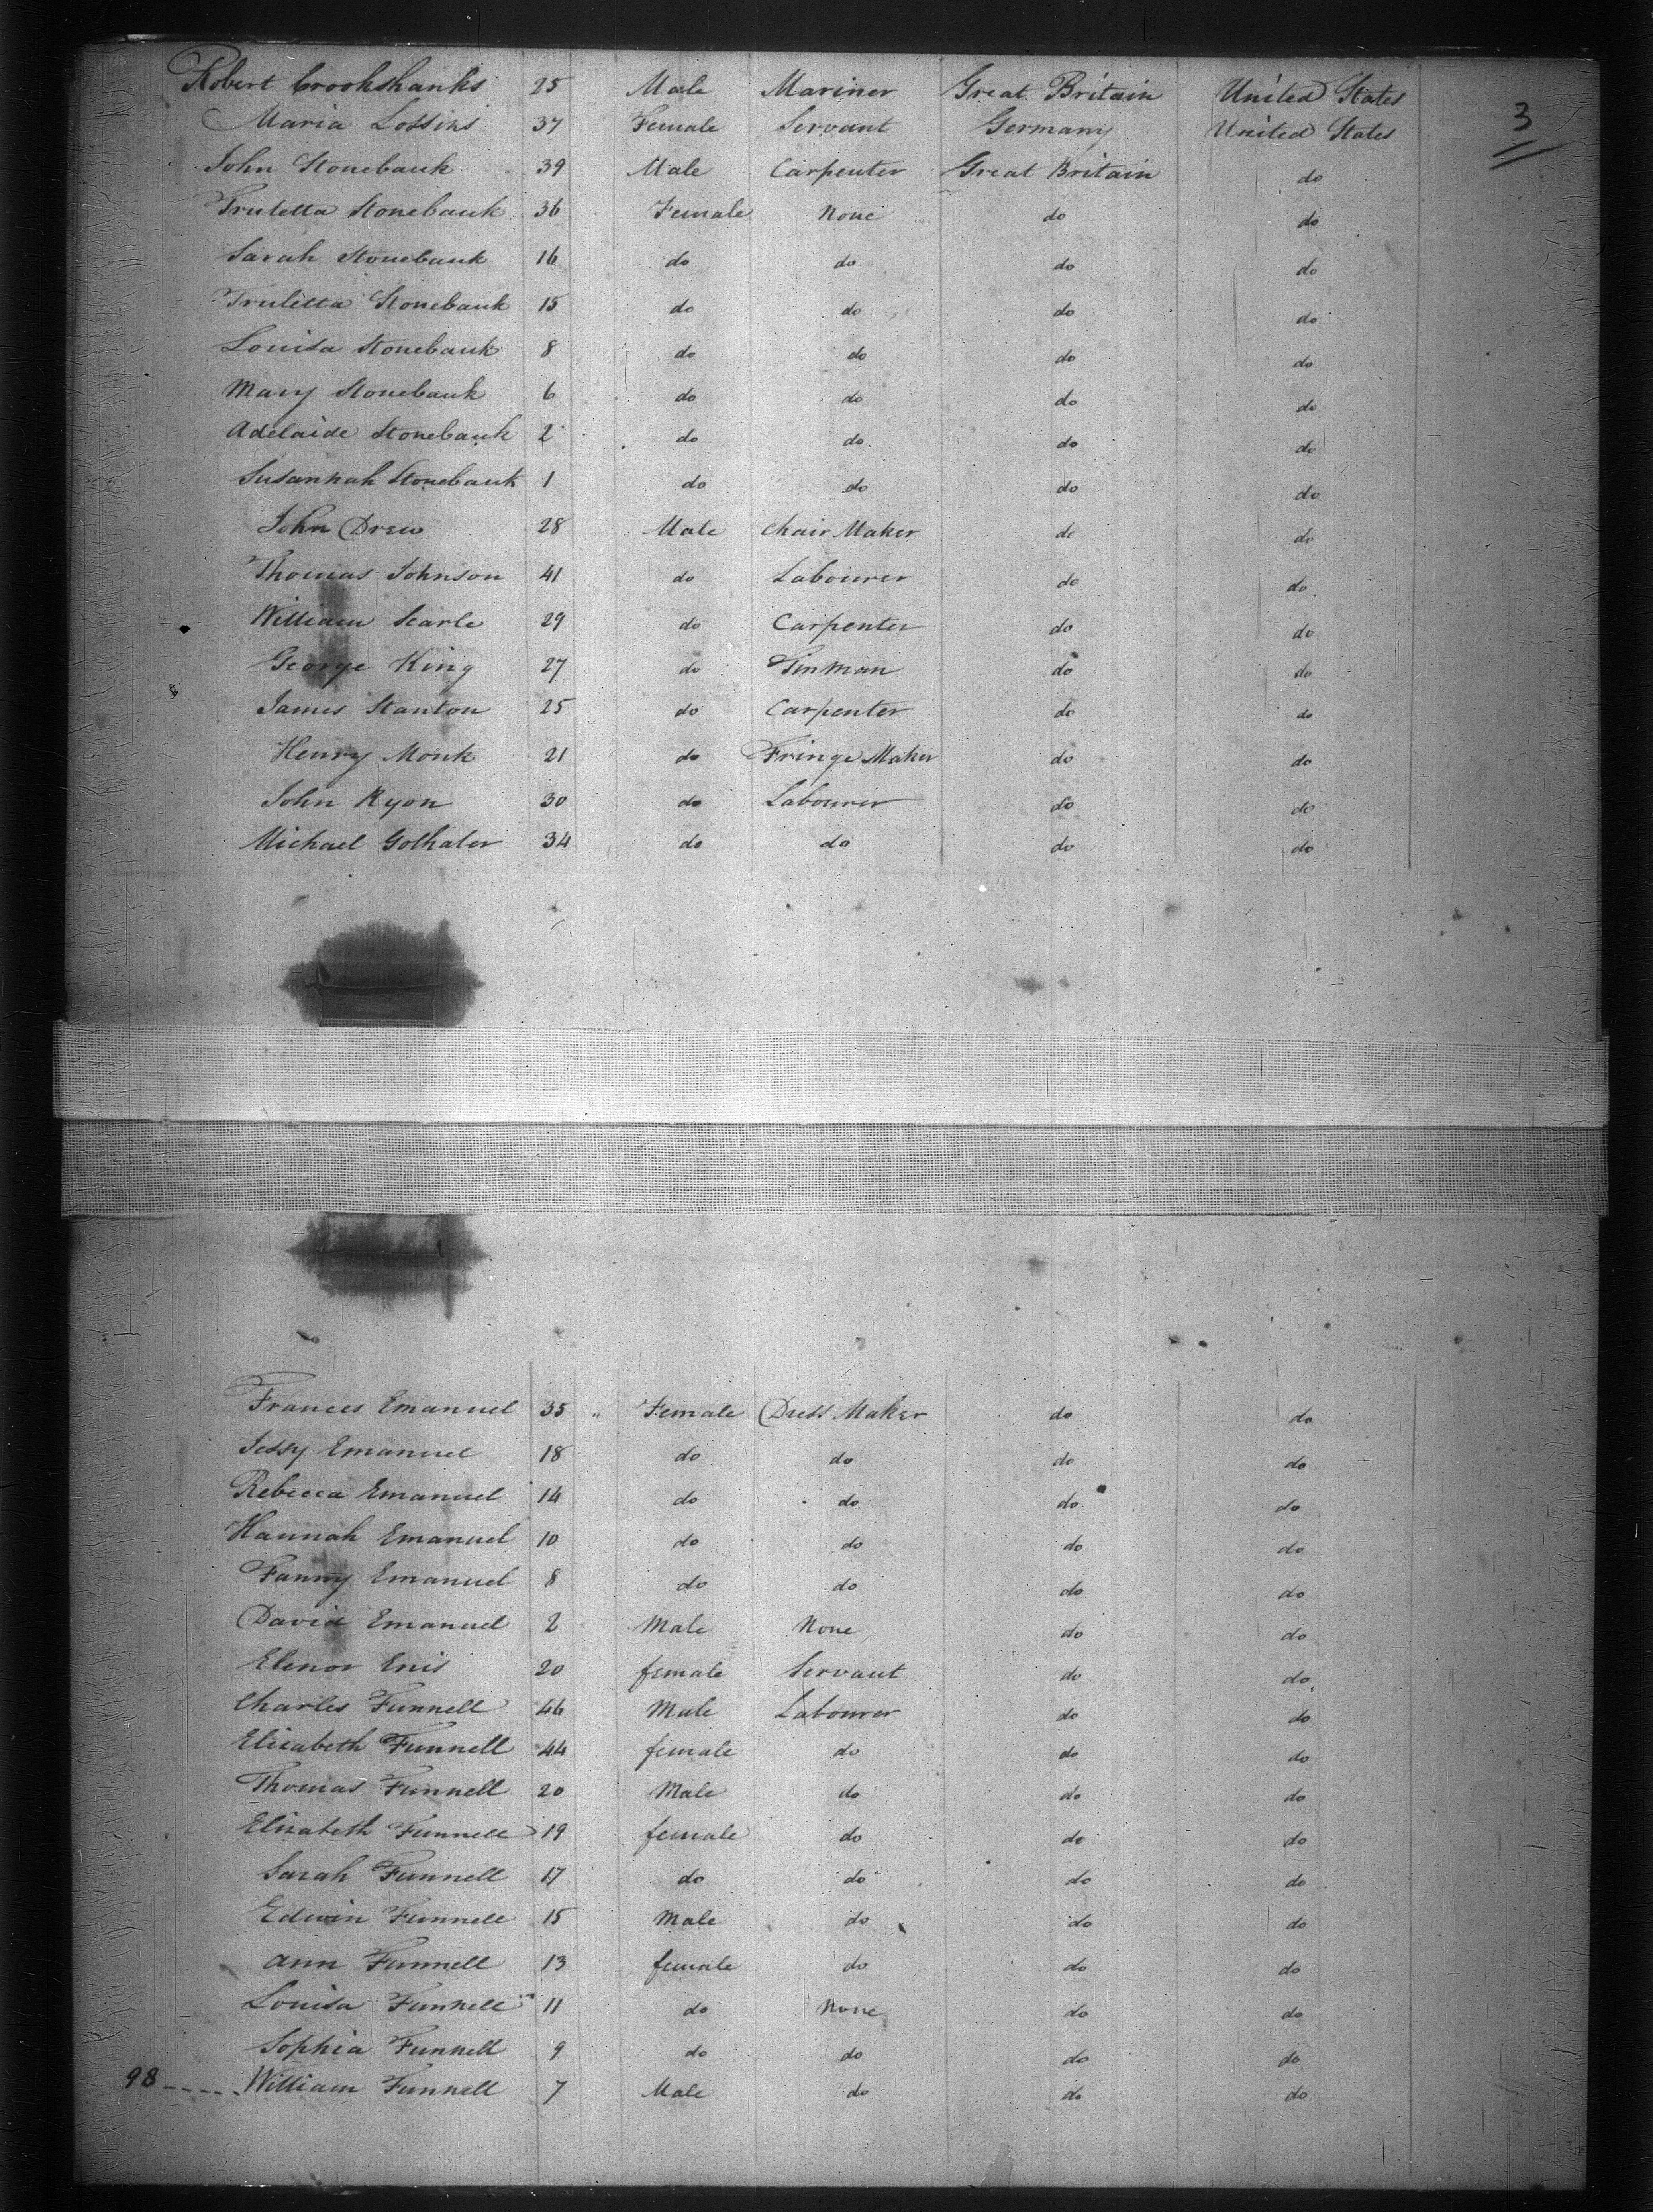 Robert Crookshanks 25 Male Mariner Great Britain United States
3
Maria Lossins 37 Female Servant Germany United States
John Stonebank 39 Male Carpenter Great Britain do
Truletta Stonebank 36 Female None do do
Sarah Stonebank 16 do do do do
Truletta Stonebank 15 do do do do
Louisa Stonebank 8 do do do do
Mary Stonebank 6 do do do do
Adelaide Stonebank 2 do do do do
Susannah Stonebank 1 do do do do
John Drew 28 Male Chair Maker do do
Thomas Johnson 41 do Labourer do do
William Searle 29 do Carpenter do do
George King 27 do Tinman do do
James Stanton 25 do Carpenter do do
Henry Monk 21 do Fringe Maker do do
John Ryon 30 do Labourer do do
Michael Golhaler 34 do do do do
Frances Emanuel 35 " Female Dress Maker do do
Jessy Emanuel 18 do do do do
Rebecca Emanuel 14 do do do do
Hannah Emanuel 10 do do do do
Fanny Emanuel 8 do do do do
David Emanuel 2 Male None do do
Elenor Enis 20 female Servant do do
Charles Funnell 46 Male Labourer do do
Elizabeth Funnell 44 female do do do
Thomas Funnell 20 Male do do do
Elizabeth Funnell 19 female do do do
Sarah Funnell 17 do do do do
Edwin Funnell 15 Male do do do
Ann Funnell 13 female do do do
Louisa Funnell 11 do None do do
Sophia Funnell 9 do do do do
98 ----- William Funnell 7 Male do do do